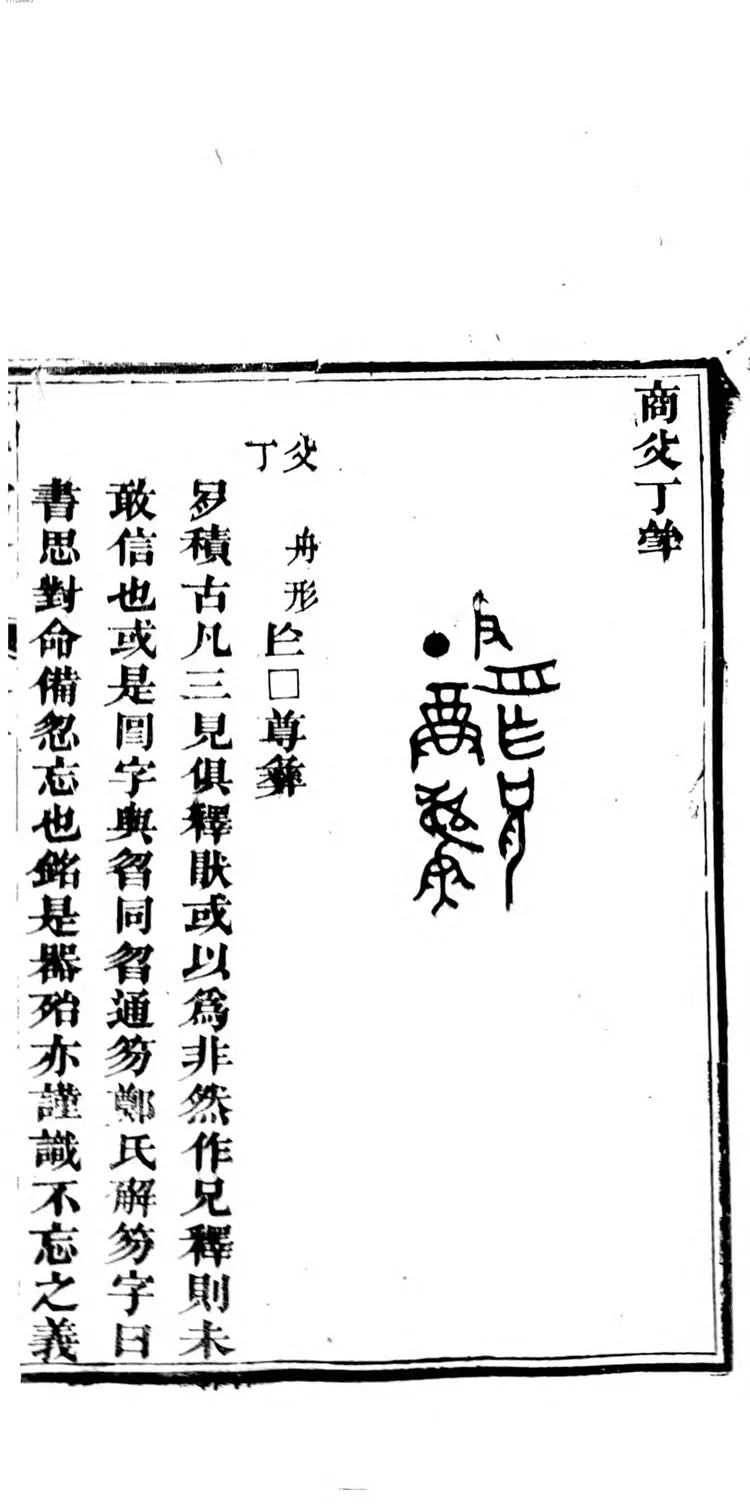 商父丁彝
父
丁
舟形
□尊彝
積古凡三見俱釋或以爲非然作兄釋則未
敢信也或是字與曶同曶通笏鄭氏解笏字曰
書思對命備忽忘也銘是器殆亦謹識不忘之義